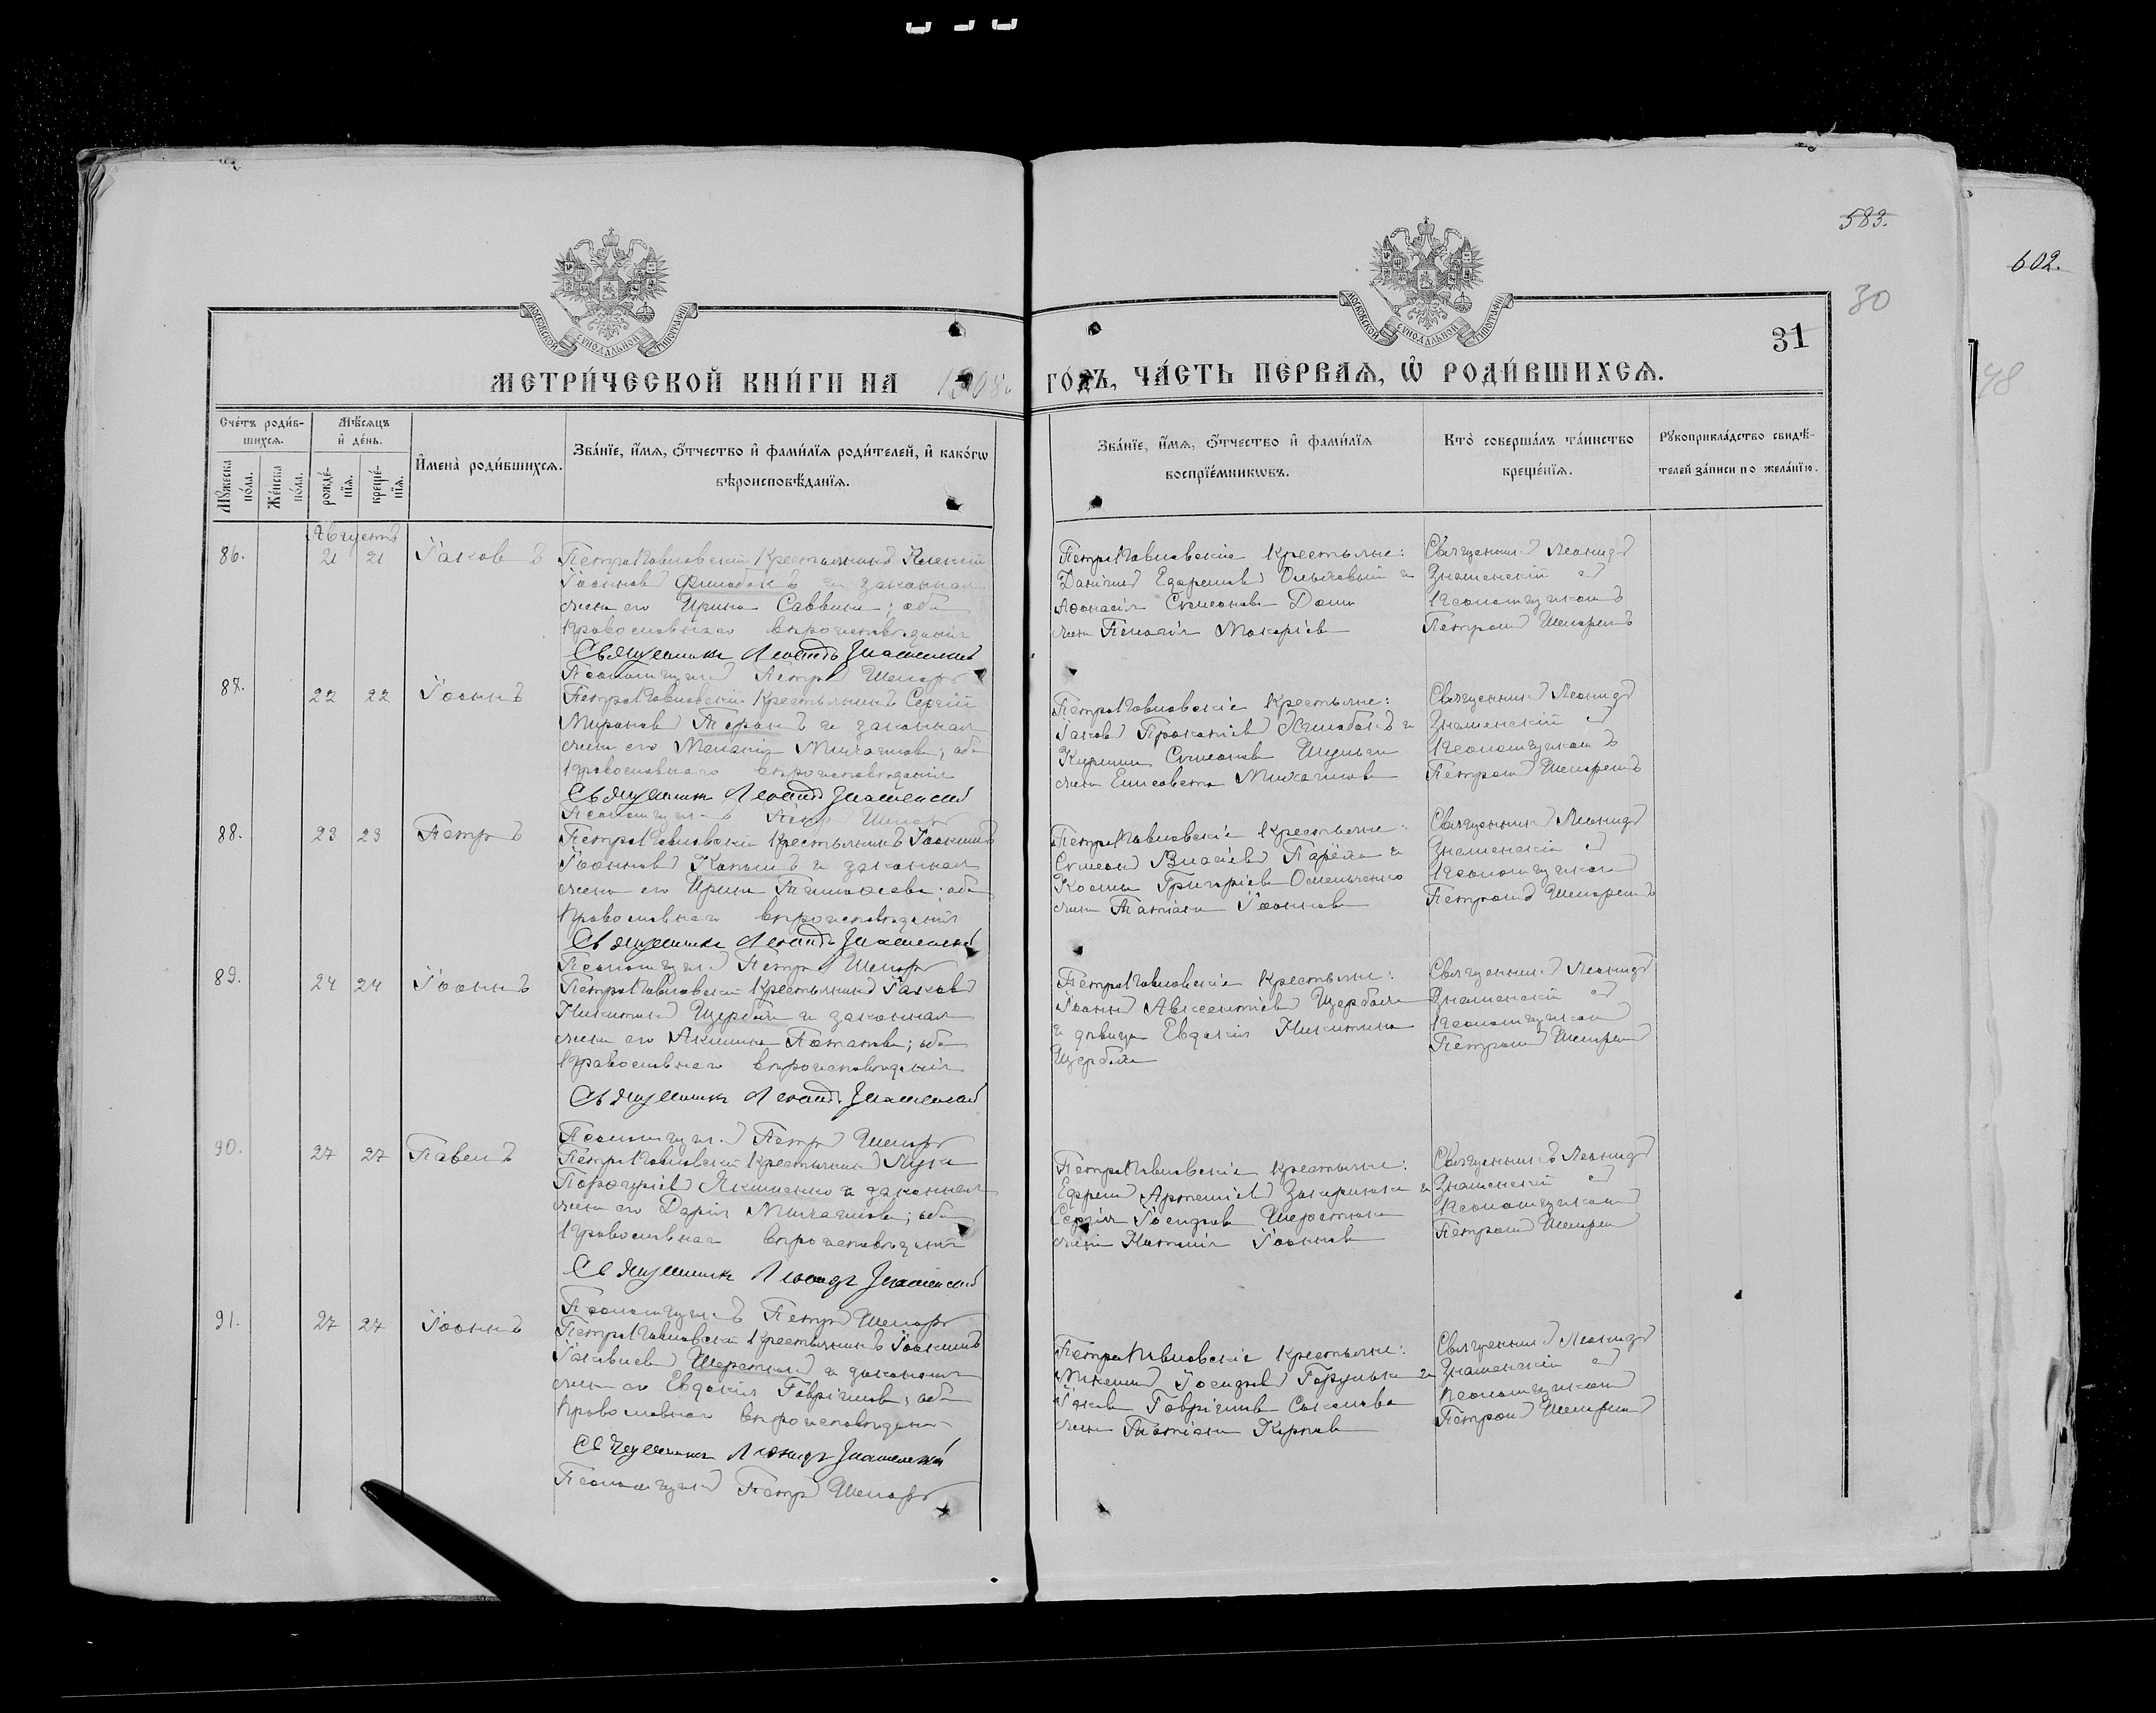 583.
602.
30
31
48
МОСКОВСКОЙ СУНОДАЛЬНОЙ ТИПОГРАФІИ
МОСКОВСКОЙ СУНОДАЛЬНОЙ ТИПОГРАФІИ
МЕТРИ́ЧЕСКОЙ КНИ́ГИ НА 1908 ГО́ДЪ, ЧА́СТЬ ПЕ́РВАѦ, Ѡ҆ РОДИ́ВШИХСѦ.
Сче́тъ роди́в-
шихсѧ.
Мꙋ́жеска по́ла.
Же́нска по́ла.
Мѣ́сѧцъ
и҆ де́нь.
рожде́-
нїѧ.
креще́-
нїѧ.
И҆мена̀ роди́вшихсѧ.
Зва́нїе, и҆́мѧ, ѻ҆́тчество и҆ фами́лїѧ роди́телей, и҆ како́гѡ
вѣроисповѣ́данїѧ.
Зва́нїе, и҆́мѧ, ѻ҆́тчество и҆ фами́лїѧ
воспрїе́мникѡвъ.
Кто̀ соверша́лъ та́инство
креще́нїѧ.
Рꙋкоприкла́дство свидѣ́-
телей за́писи по жела́нїю.
Августъ
86.
21 21
Іаковъ
Петропавловскій крестьянинъ Алексій
Іоанновъ и законная
жена его Ирина Саввина; оба
православнаго вѣроисповѣданія
Священникъ Леонидъ Знаменскій
Псаломщикъ Петръ
Петропавловскіе крестьяне:
Даніилъ Ефремовъ и
Аѳанасія Симеонова
жена Пелагія Макарієва
Священникъ Леонидъ
Знаменскій съ
псаломщикомъ
Петромъ
87.
22 22
Іоаннъ
Петропавловскій крестьянинъ Сергій
Мироновъ Таранъ и законная
жена его Меланія Михаилова; оба
православнаго вѣроисповѣданія
Священникъ Леонидъ Знаменскій
Псаломщикъ Петръ
Петропавловскіе крестьяне:
Іаковъ Прокопіевъ и
Кирилла Симеонова Шульги
жена Елисавета Михаилова
Священникъ Леонидъ
Знаменскій съ
псаломщикомъ
Петромъ
88.
23 23
Петръ
Петропавловскій крестьянинъ Іоакимъ
Іоанновъ и законная
жена его Ирина Тимоѳеева; оба
православнаго вѣроисповѣданія
Священникъ Леонидъ Знаменскій
Псаломщикъ Петръ
Петропавловскіе крестьяне:
Симеонъ Власіевъ и
Космы Григоріева Омельченко
жена Татіана Іоаннова
Священникъ Леонидъ
Знаменскій съ
псаломщикомъ
Петромъ
89.
24 24
Іоаннъ
Петропавловскій крестьянинъ Іаковъ
Никитинъ Щербина и законная
жена его Акилина Потапова; оба
православнаго вѣроисповѣданія
Священникъ Леонидъ Знаменскій
Псаломщикъ Петръ
Петропавловскіе крестьяне:
Іоаннъ Авксентіевъ
и дѣвица Евдокія Никитина
Священникъ Леонидъ
Знаменскій съ
псаломщикомъ
Петромъ
90.
27 27
Павелъ
Петропавловскій крестьянинъ Лука
Порфиріевъ Якименко и законная
жена его Дарія Михаилова; оба
православнаго вѣроисповѣданія
Священникъ Леонидъ Знаменскій
Псаломщикъ Петръ
Петропавловскіе крестьяне:
Ефремъ Артеміевъ и
Сергія Іосифова
жена Наталія Іоаннова
Священникъ Леонидъ
Знаменскій съ
псаломщикомъ
Петромъ
91.
27 27
Іоаннъ
Петропавловскій крестьянинъ Іоакимъ
Іаковлевъ и законная
жена его Евдокія Гавріилова; оба
православнаго вѣроисповѣданія
Священникъ Леонидъ Знаменскій
Псаломщикъ Петръ
Петропавловскіе крестьяне:
Іосифовъ и
Іакова Гавріилова
жена Татіана Карпова
Священникъ Леонидъ
Знаменскій съ
псаломщикомъ
Петромъ